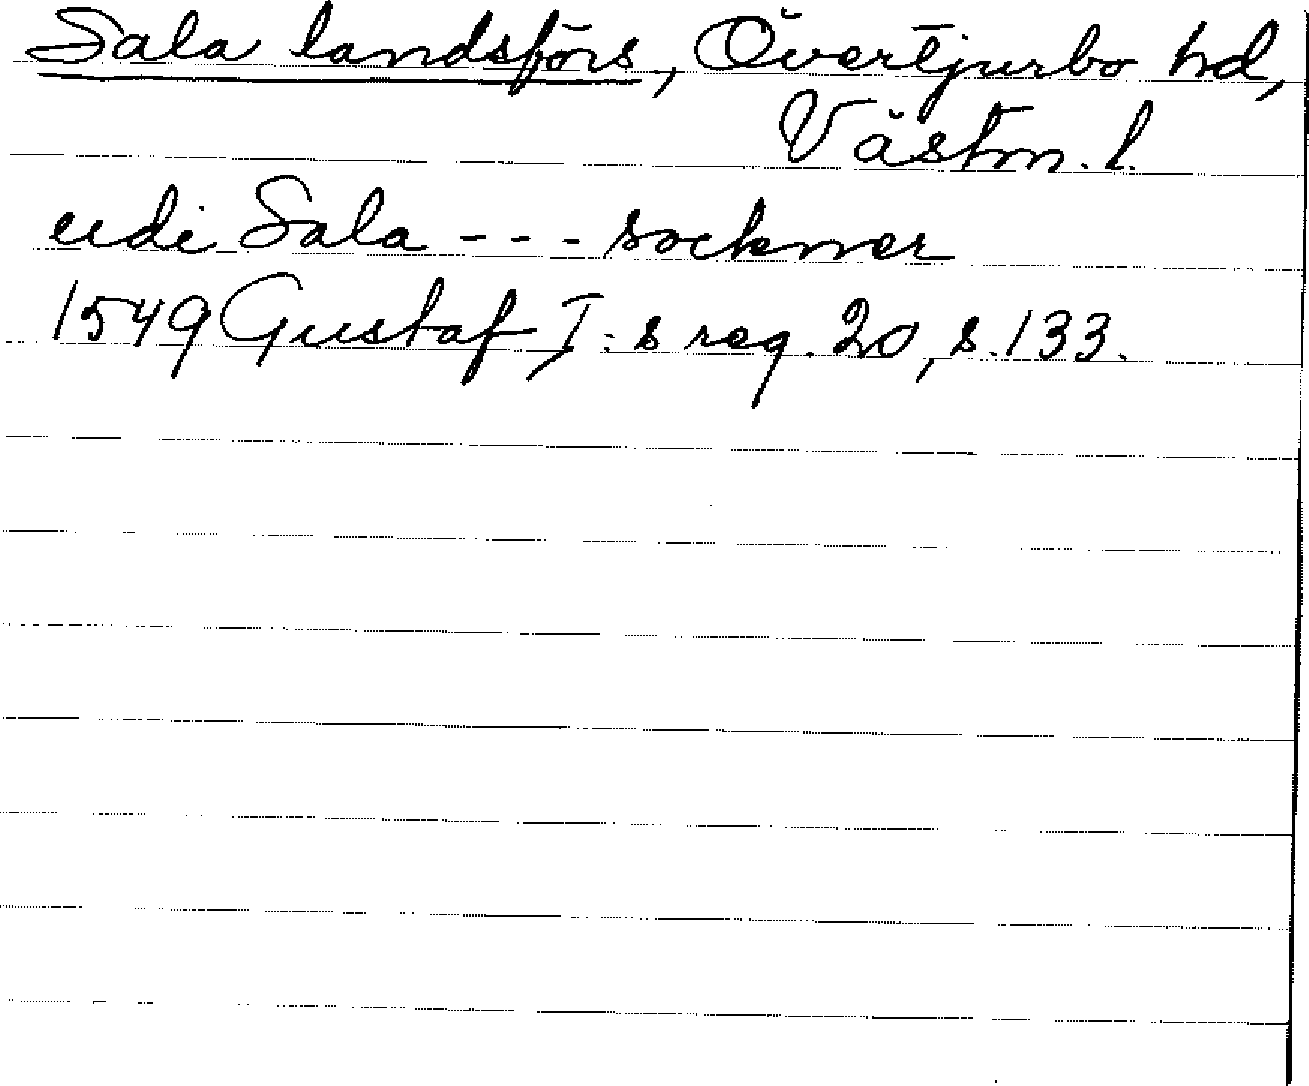 Sala landsförs, Övertjurbo hd,
Västm. l.
udi Sala - - - sockner
1549 Gustaf I:s reg. 20, s. 133.